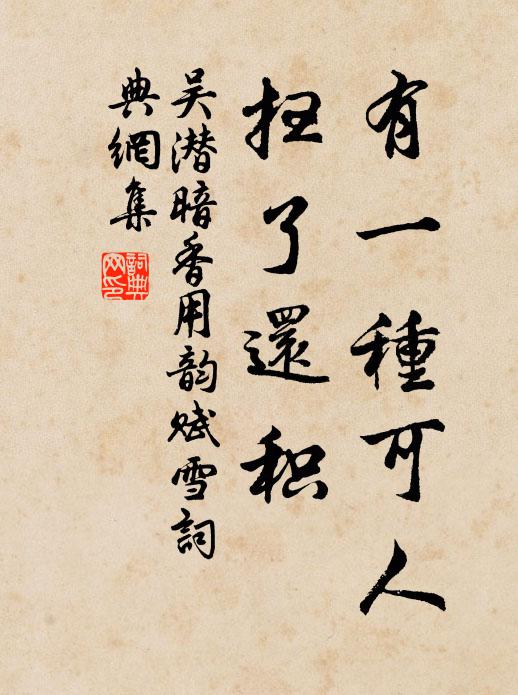 有一種可人
扫了還积
吴潜暗香用韵赋雪詞
典網集
詞典
网印